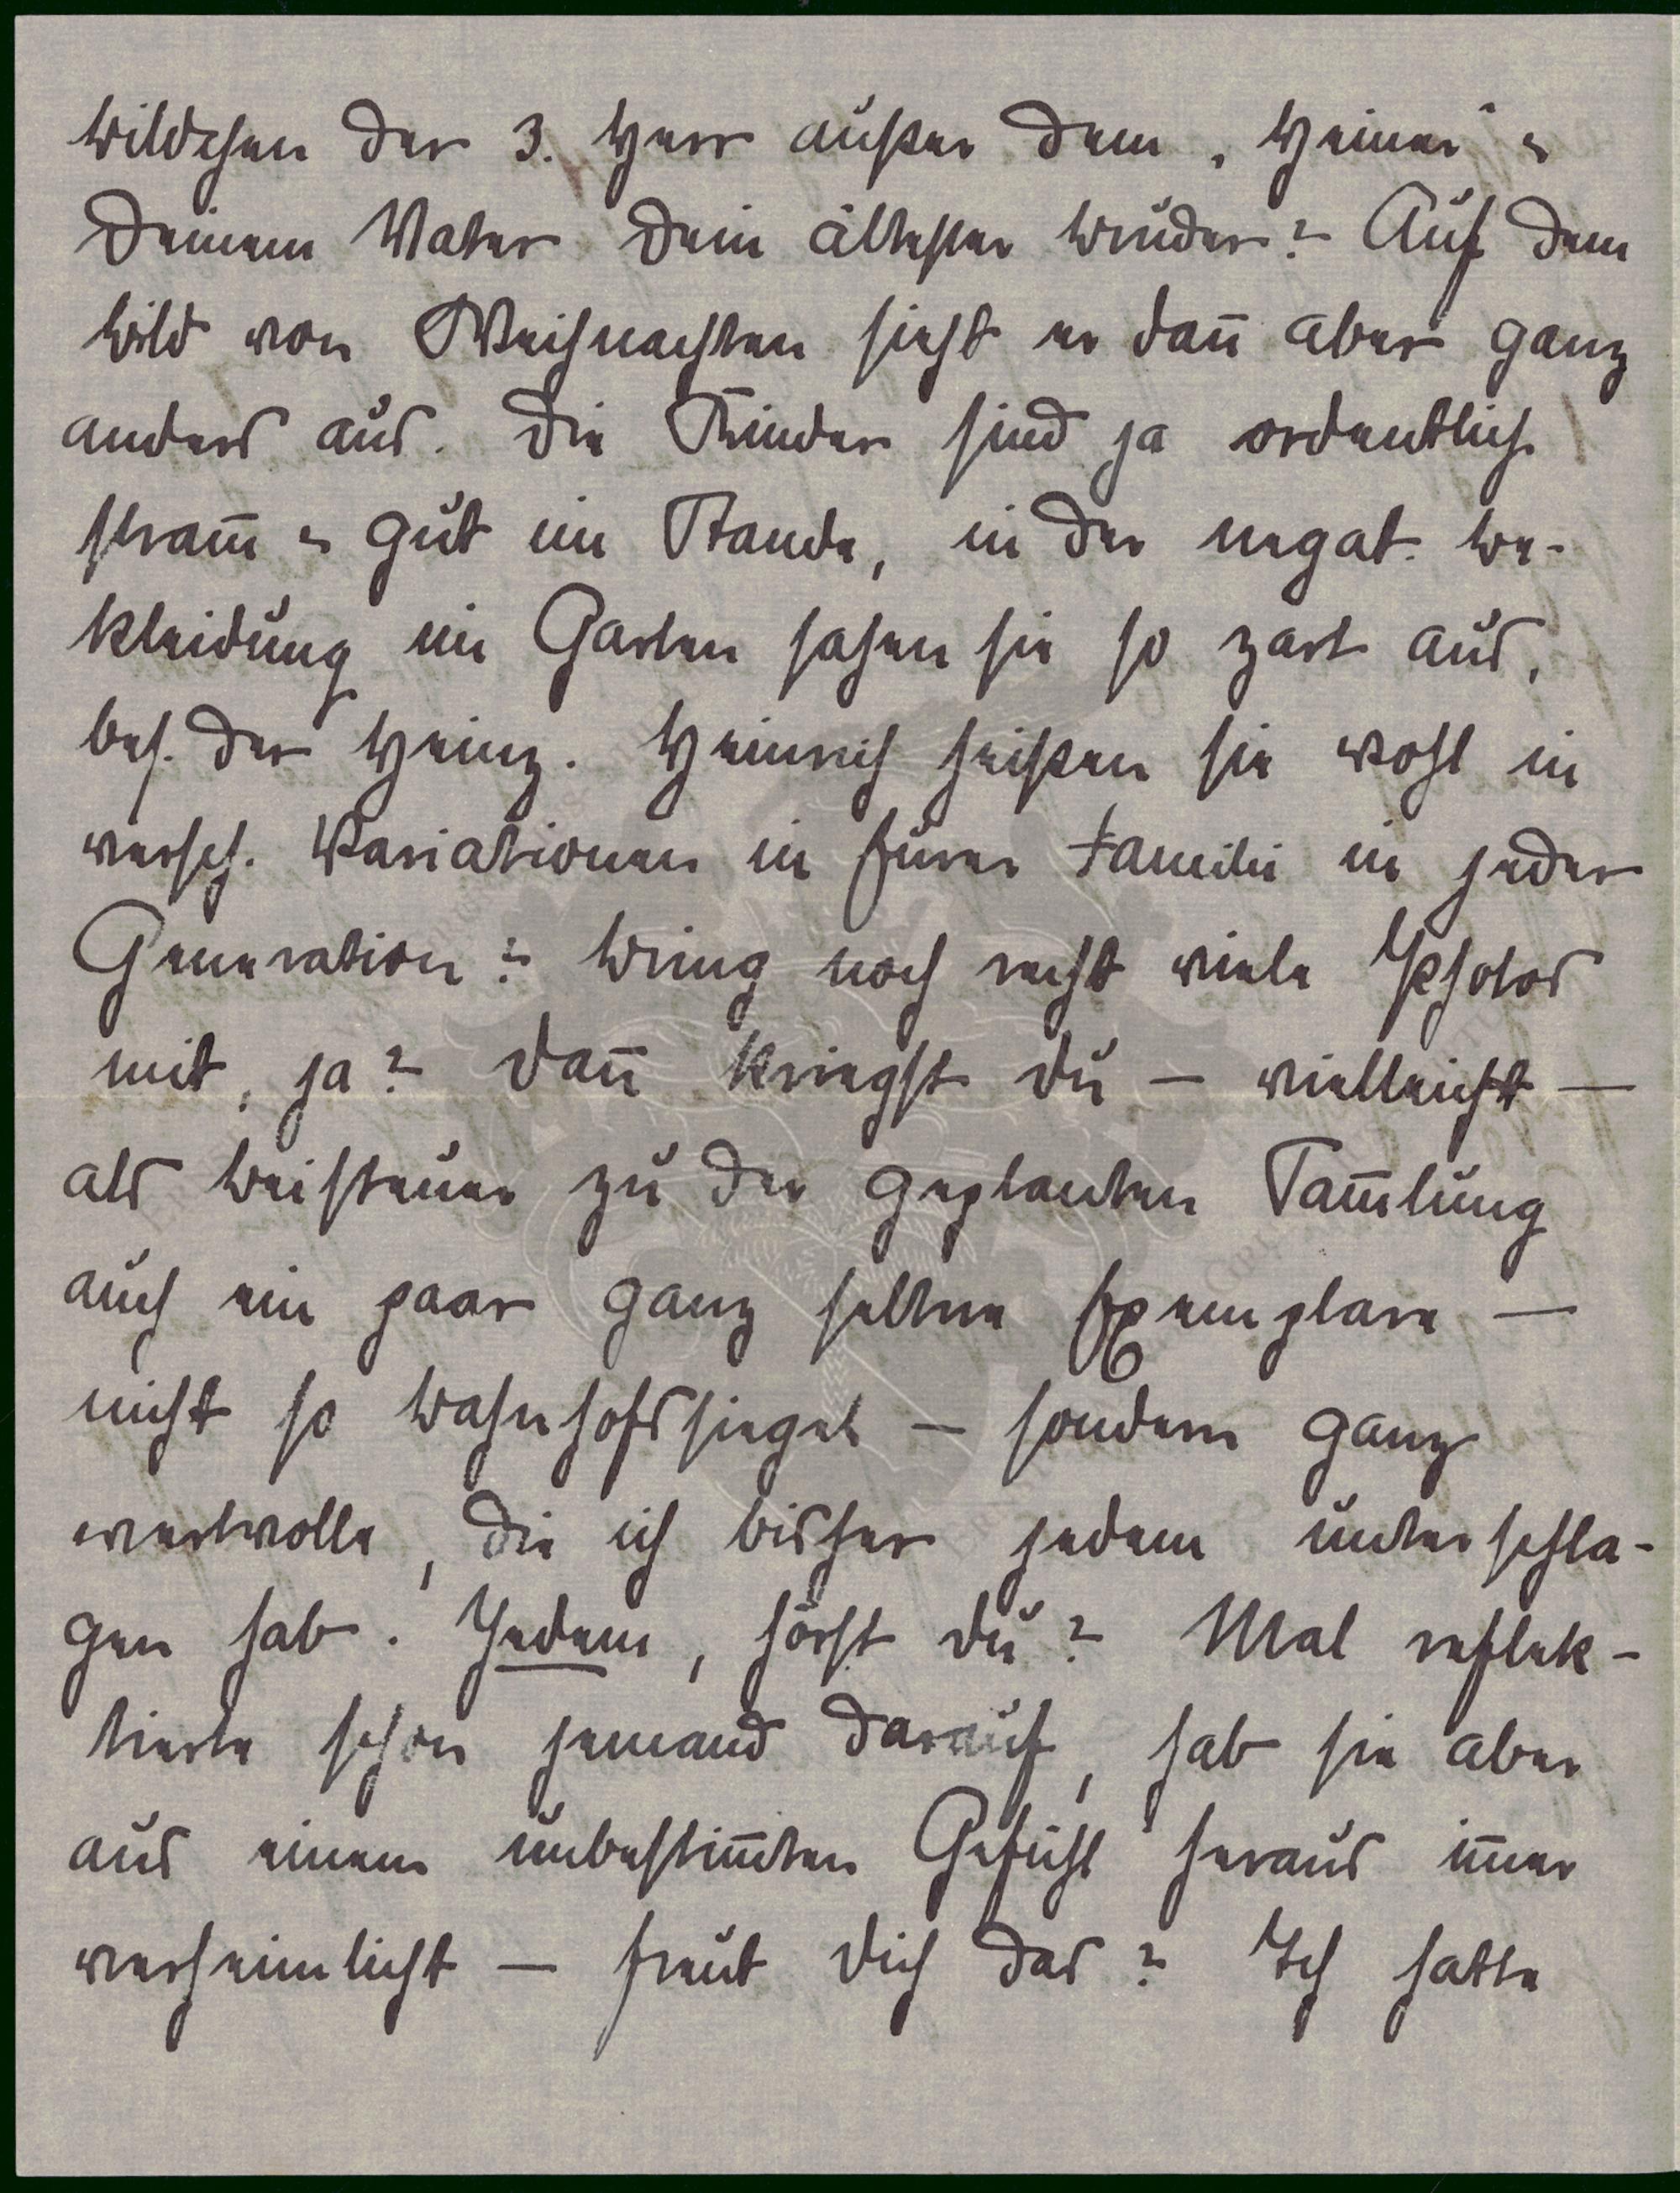 Bildchen der 3. Herr außer dem „Heiner“ u
Deinem Vater Dein ältester Bruder? Auf dem
Bild von Weihnachten sieht er dan̄ aber ganz
anders aus. Die Kinder sind ja ordentlich
stram̄ u gut im Stande, in der negat. Be-
kleidung im Garten sahen sie so zart aus,
bes. der Heinz. Heinrich heißen sie wohl in
versch. Variationen in Eurer Familie in jeder
Generation? Bring noch recht viele Photos
mit, ja? Dan̄ kriegst Du – vielleicht –
als Beisteuer zu der geplanten Sam̄lung
auch ein paar ganz seltne Exemplare –
nicht so Bahnhofssiegel – sondern ganz
wertvolle, die ich bisher jedem unterschla-
gen hab. Jedem, hörst Du? Mal reflek-
tierte schon jemand darauf, hab sie aber
aus einem unbestim̄ten Gefühl heraus im̄er
verheimlicht – freut Dich das? Ich hatte